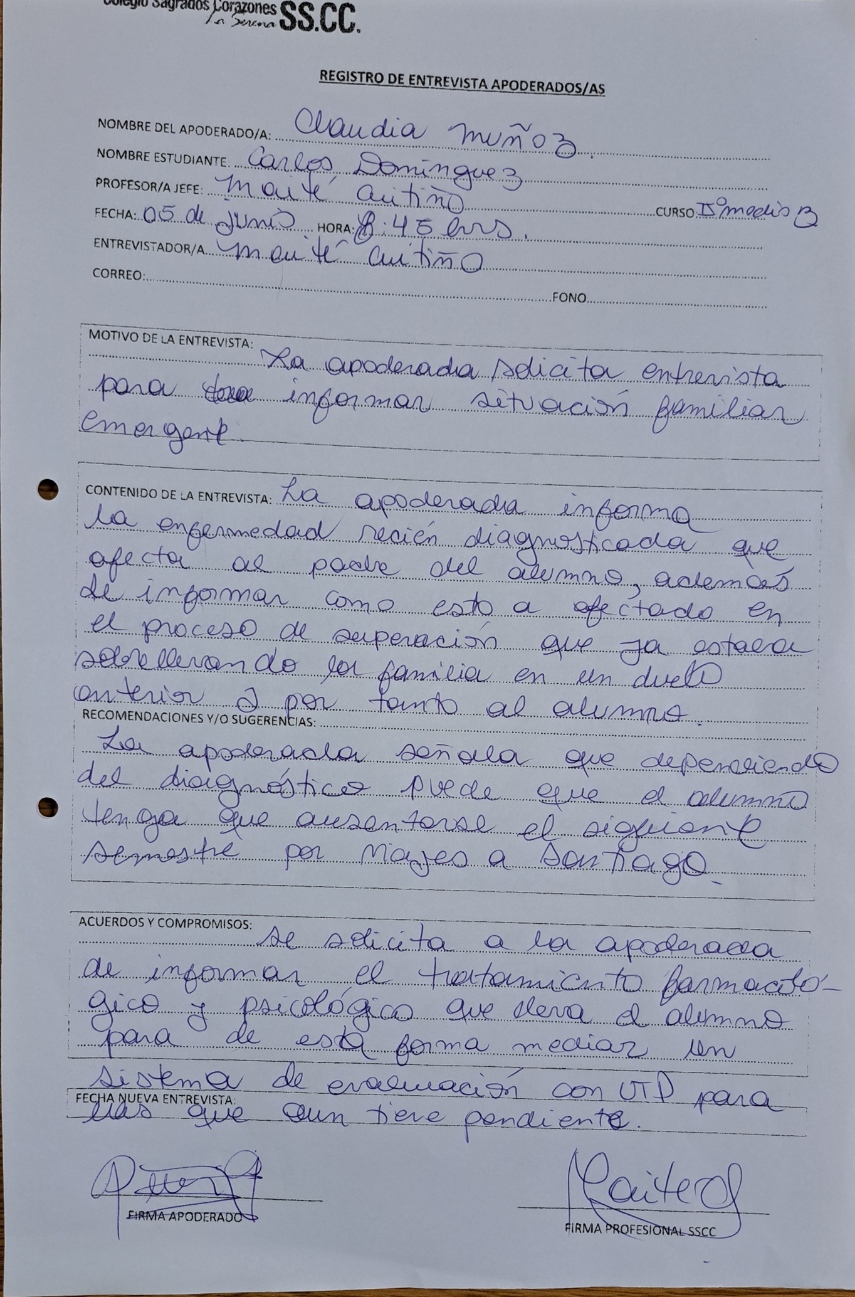 Colegio Sagrados Corazones SS.CC.
La Serena
REGISTRO DE ENTREVISTA APODERADOS/AS
NOMBRE DEL APODERADO/A: Claudia Muñoz
NOMBRE ESTUDIANTE: Carlos Dominguez
PROFESOR/A JEFE: Maité Autiño CURSO IIº medio B
FECHA: 05 de junio HORA: 8:45 hrs.
ENTREVISTADOR/A Maité Autiño
CORREO: FONO
MOTIVO DE LA ENTREVISTA:
La apoderada solicita entrevista
para informar situación familiar
emergente
CONTENIDO DE LA ENTREVISTA: La apoderada informa
la enfermedad recién diagnosticada que
afecta al padre del alumno, además
de informar como esto a afectado en
el proceso de superación que ya estaba
sobrellevando la familia en un duelo
anterior y por tanto al alumno.
RECOMENDACIONES Y/O SUGERENCIAS:
La apoderada señala que dependiendo
del diagnóstico puede que el alumno
tenga que ausentarse el siguiente
semestre por viajes a Santiago.
ACUERDOS Y COMPROMISOS:
se solicita a la apoderada
de informar el tratamiento farmacoló-
gico y psicológico que lleva el alumno
para de esta forma mediar un
sistema de evaluación con UTP para
FECHA NUEVA ENTREVISTA:
las que aun tiene pendiente.
FIRMA APODERADO
FIRMA PROFESIONAL SSCC